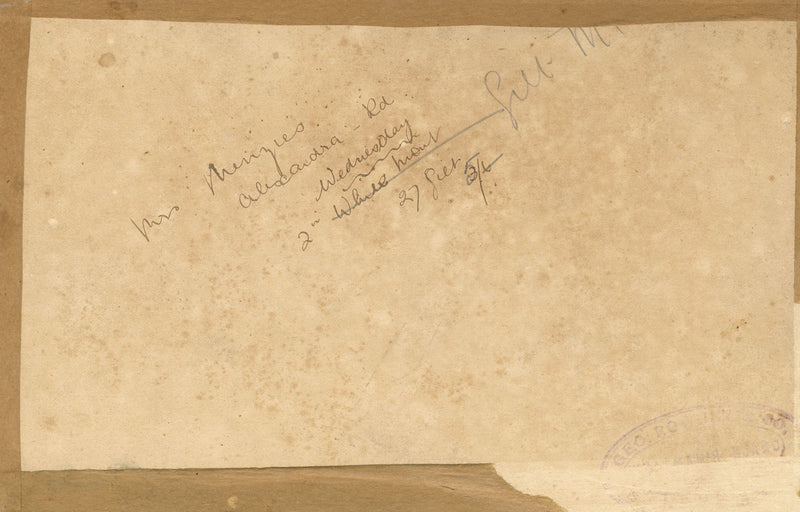 Mrs Menzies
Alexandra Rd
Wednesday
2 in White Mount
Gilt M
27 Gilt 5/6
GEO. RO